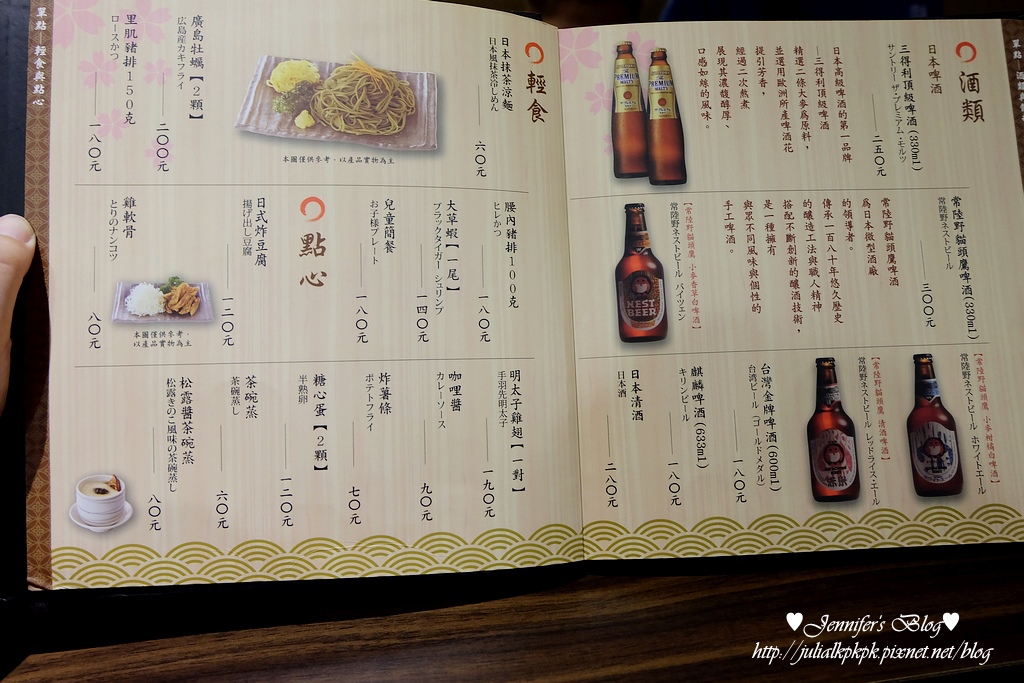 單點 — 輕食與點心
酒類
日本啤酒
三得利頂級啤酒(330ml)
サントリー ザ・プレミアム・モルツ
二五〇元
日本高級啤酒的第一品牌
—三得利頂級啤酒
精選二條大麥為原料，
並選用歐洲所產啤酒花
提引芳香，
經過二次熬煮
展現其濃馥醇厚、
口感如綠的風味。
常陸野貓頭鷹啤酒(330ml)
常陸野ネストビール
三〇〇元
常陸野貓頭鷹啤酒
為日本微型酒廠
的領導者。
傳承一百八十年悠久歷史
的釀造工法與職人精神
搭配不斷創新的釀酒技術，
是一種擁有
與眾不同風味與個性的
手工啤酒。
【常陸野貓頭鷹 小麥香草白啤酒】
常陸野ネストビール バイツェン
【常陸野貓頭鷹 小麥柑橘白啤酒】
常陸野ネストビール ホワイトエール
【常陸野貓頭鷹 清酒啤酒】
常陸野ネストビール レッドライス・エール
台灣金牌啤酒(600ml)
台湾ビール（ゴールドメダル）
一八〇元
麒麟啤酒(633ml)
キリンビール
一八〇元
日本清酒
日本酒
二八〇元
PREMIUM
MALT'S
PREMIUM
MALT'S
NEST
BEER
輕食
日本抹茶涼麵
日本風抹茶冷しめん
一六〇元
本圖僅供參考，以產品實物為主
廣島牡蠣【2顆】
広島産カキフライ
二〇〇元
里肌豬排150克
ロースかつ
一八〇元
腰內豬排100克
ヒレかつ
一八〇元
大草蝦【一尾】
ブラックタイガー シュリンプ
一四〇元
兒童簡餐
お子様プレート
一八〇元
點心
日式炸豆腐
揚げ出し豆腐
一二〇元
本圖僅供參考，
以產品實物為主
雞軟骨
とりのナンコツ
八〇元
明太子雞翅【一對】
手羽先明太子
一九〇元
咖哩醬
カレーソース
九〇元
炸薯條
ポテトフライ
七〇元
糖心蛋【2顆】
半熟卵
一二〇元
茶碗蒸
茶碗蒸し
六〇元
松露醬茶碗蒸
松露きのこ風味の茶碗蒸し
八〇元
♥Jennifer's Blog♥
http://julialkpkpk.pixnet.net/blog